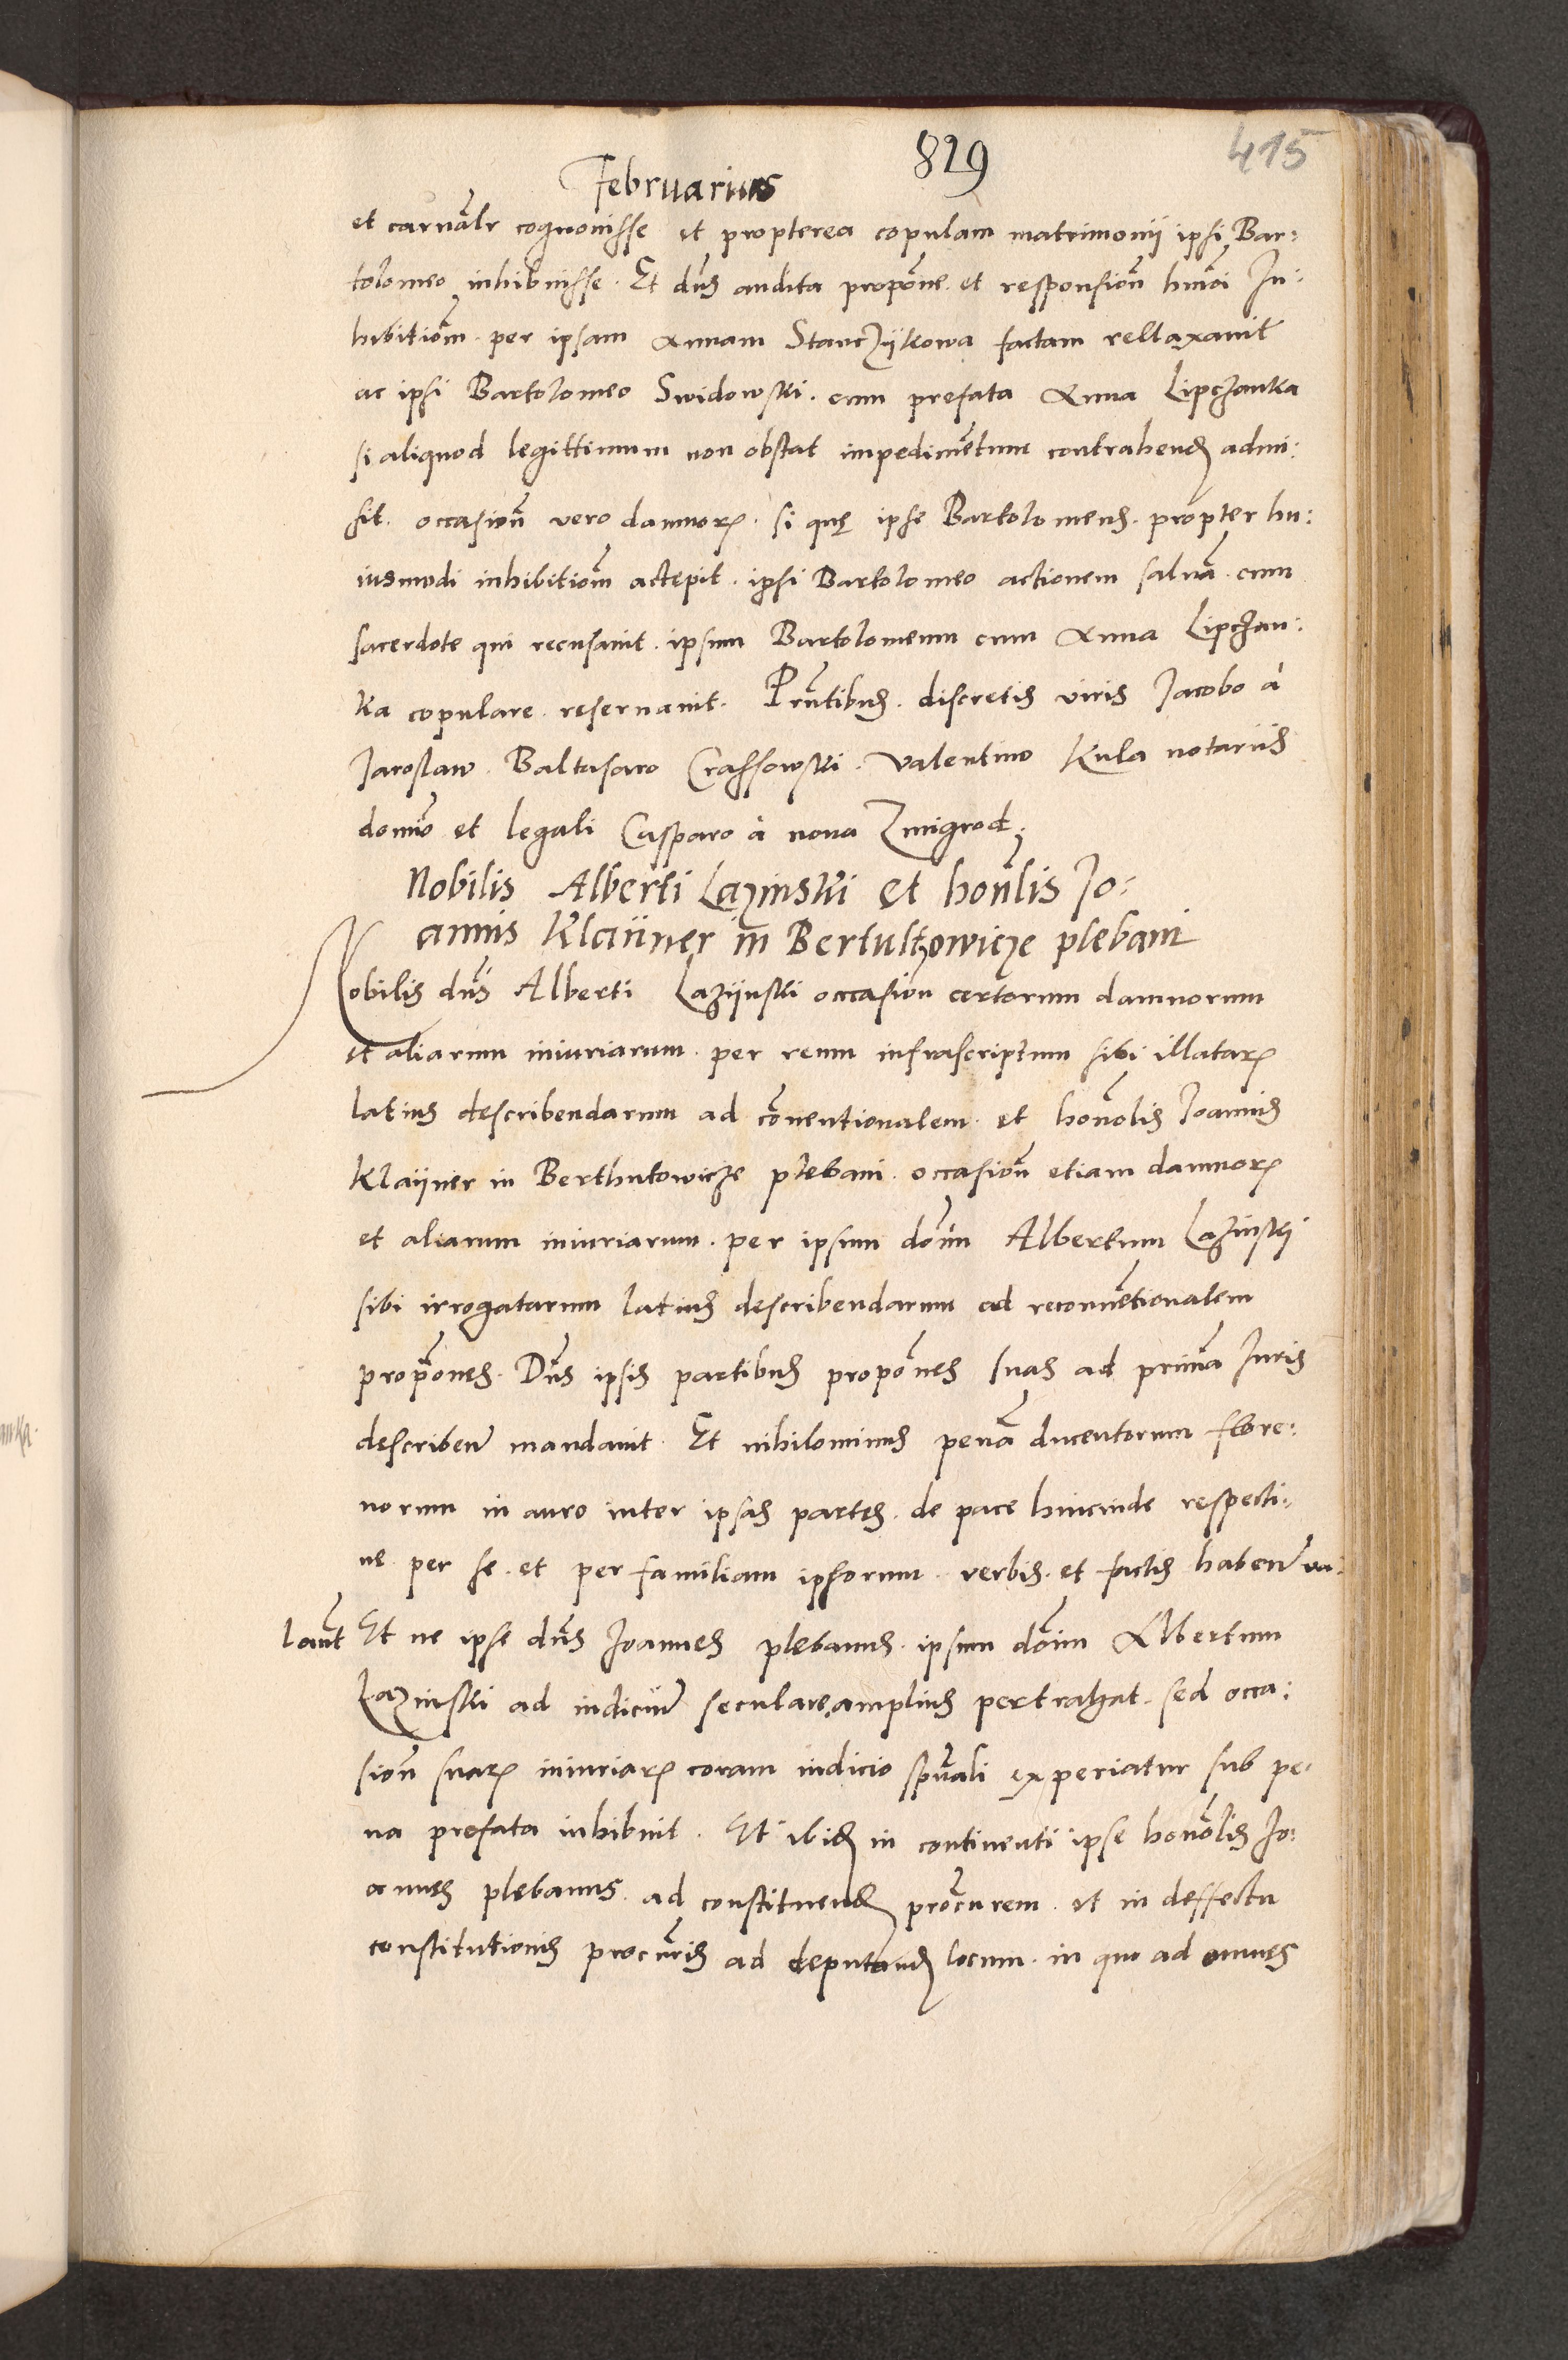 829
415
Februarius
et carnālr cognovisse et propterea copulam matrimonii ipsi Bar:
tolomeo inhibuisse. Et dn̄s audita propōne et responsiōn hmōi In:
hibitiōm per ipsam Annam Stanczÿkowa factam rellaxavit
ac ipsi Bartolomeo Swidowski. cum prefata Anna Lipczanka
si aliquod legittimum non obstat impedimētum contrahend admi:
sit. occasiōn vero damnorꝝ. si quę ipse Bartolomeus. propter hu:
iusmodi inhibitiōm accępit. ipsi Bartolomeo actionem salvā. cum
sacerdote qui recusavit. ipsum Bartolomeum cum Anna Lipczan:
ka copulare. reservavit. Prn̄tibus. discretis viris Jacobo à
Jaroslaw. Baltasaro Crassowski. Valentino Kula notariis
domīo et legali Casparo à nova Zmigrod.
Nobilis Alberti Lazinski et honōlis Jo:
annis Klaÿner in Bertultzowicze plebani
Nobilis dn̄s Alberti Lazÿnski occasiōn certorum damnorum
et aliarum iniuriarum. per reum infrascriptum sibi illatarꝝ
latius describendarum ad cōventionalem. et honōlis Joannis
Klaÿner in Berthutowicze plebani. occasiōn etiam damnorꝝ
et aliarum iniuriarum. per ipsum dōnm Albertum Lazinski
sibi irrogatarum latius describendarum ad reconvētionalem
propōnes. Dn̄s ipsis partibus propōnes suas ad primā Juris
describere mandavit. Et nihilominus penā ducentorum flore:
norum in auro inter ipsas partes. de pace hincinde respecti:
ve per se. et per familiam ipsorum. verbis. et factis habend va:
lavit Et ne ipse dn̄s Joannes plebanus. ipsum dōnm Albertum
Lazinski ad iudicium seculare amplius pertrahat. sed occa:
siōn suarꝝ iniuriarꝝ coram iudicio spūali experiatur sub pe:
na prefata inhibuit. Et ibid in continenti ipse honōlis Jo:
annes plebanus. ad constituend procūrem. et in deffectu
constitutionis procūris ad deputand locum. in quo ad omnes